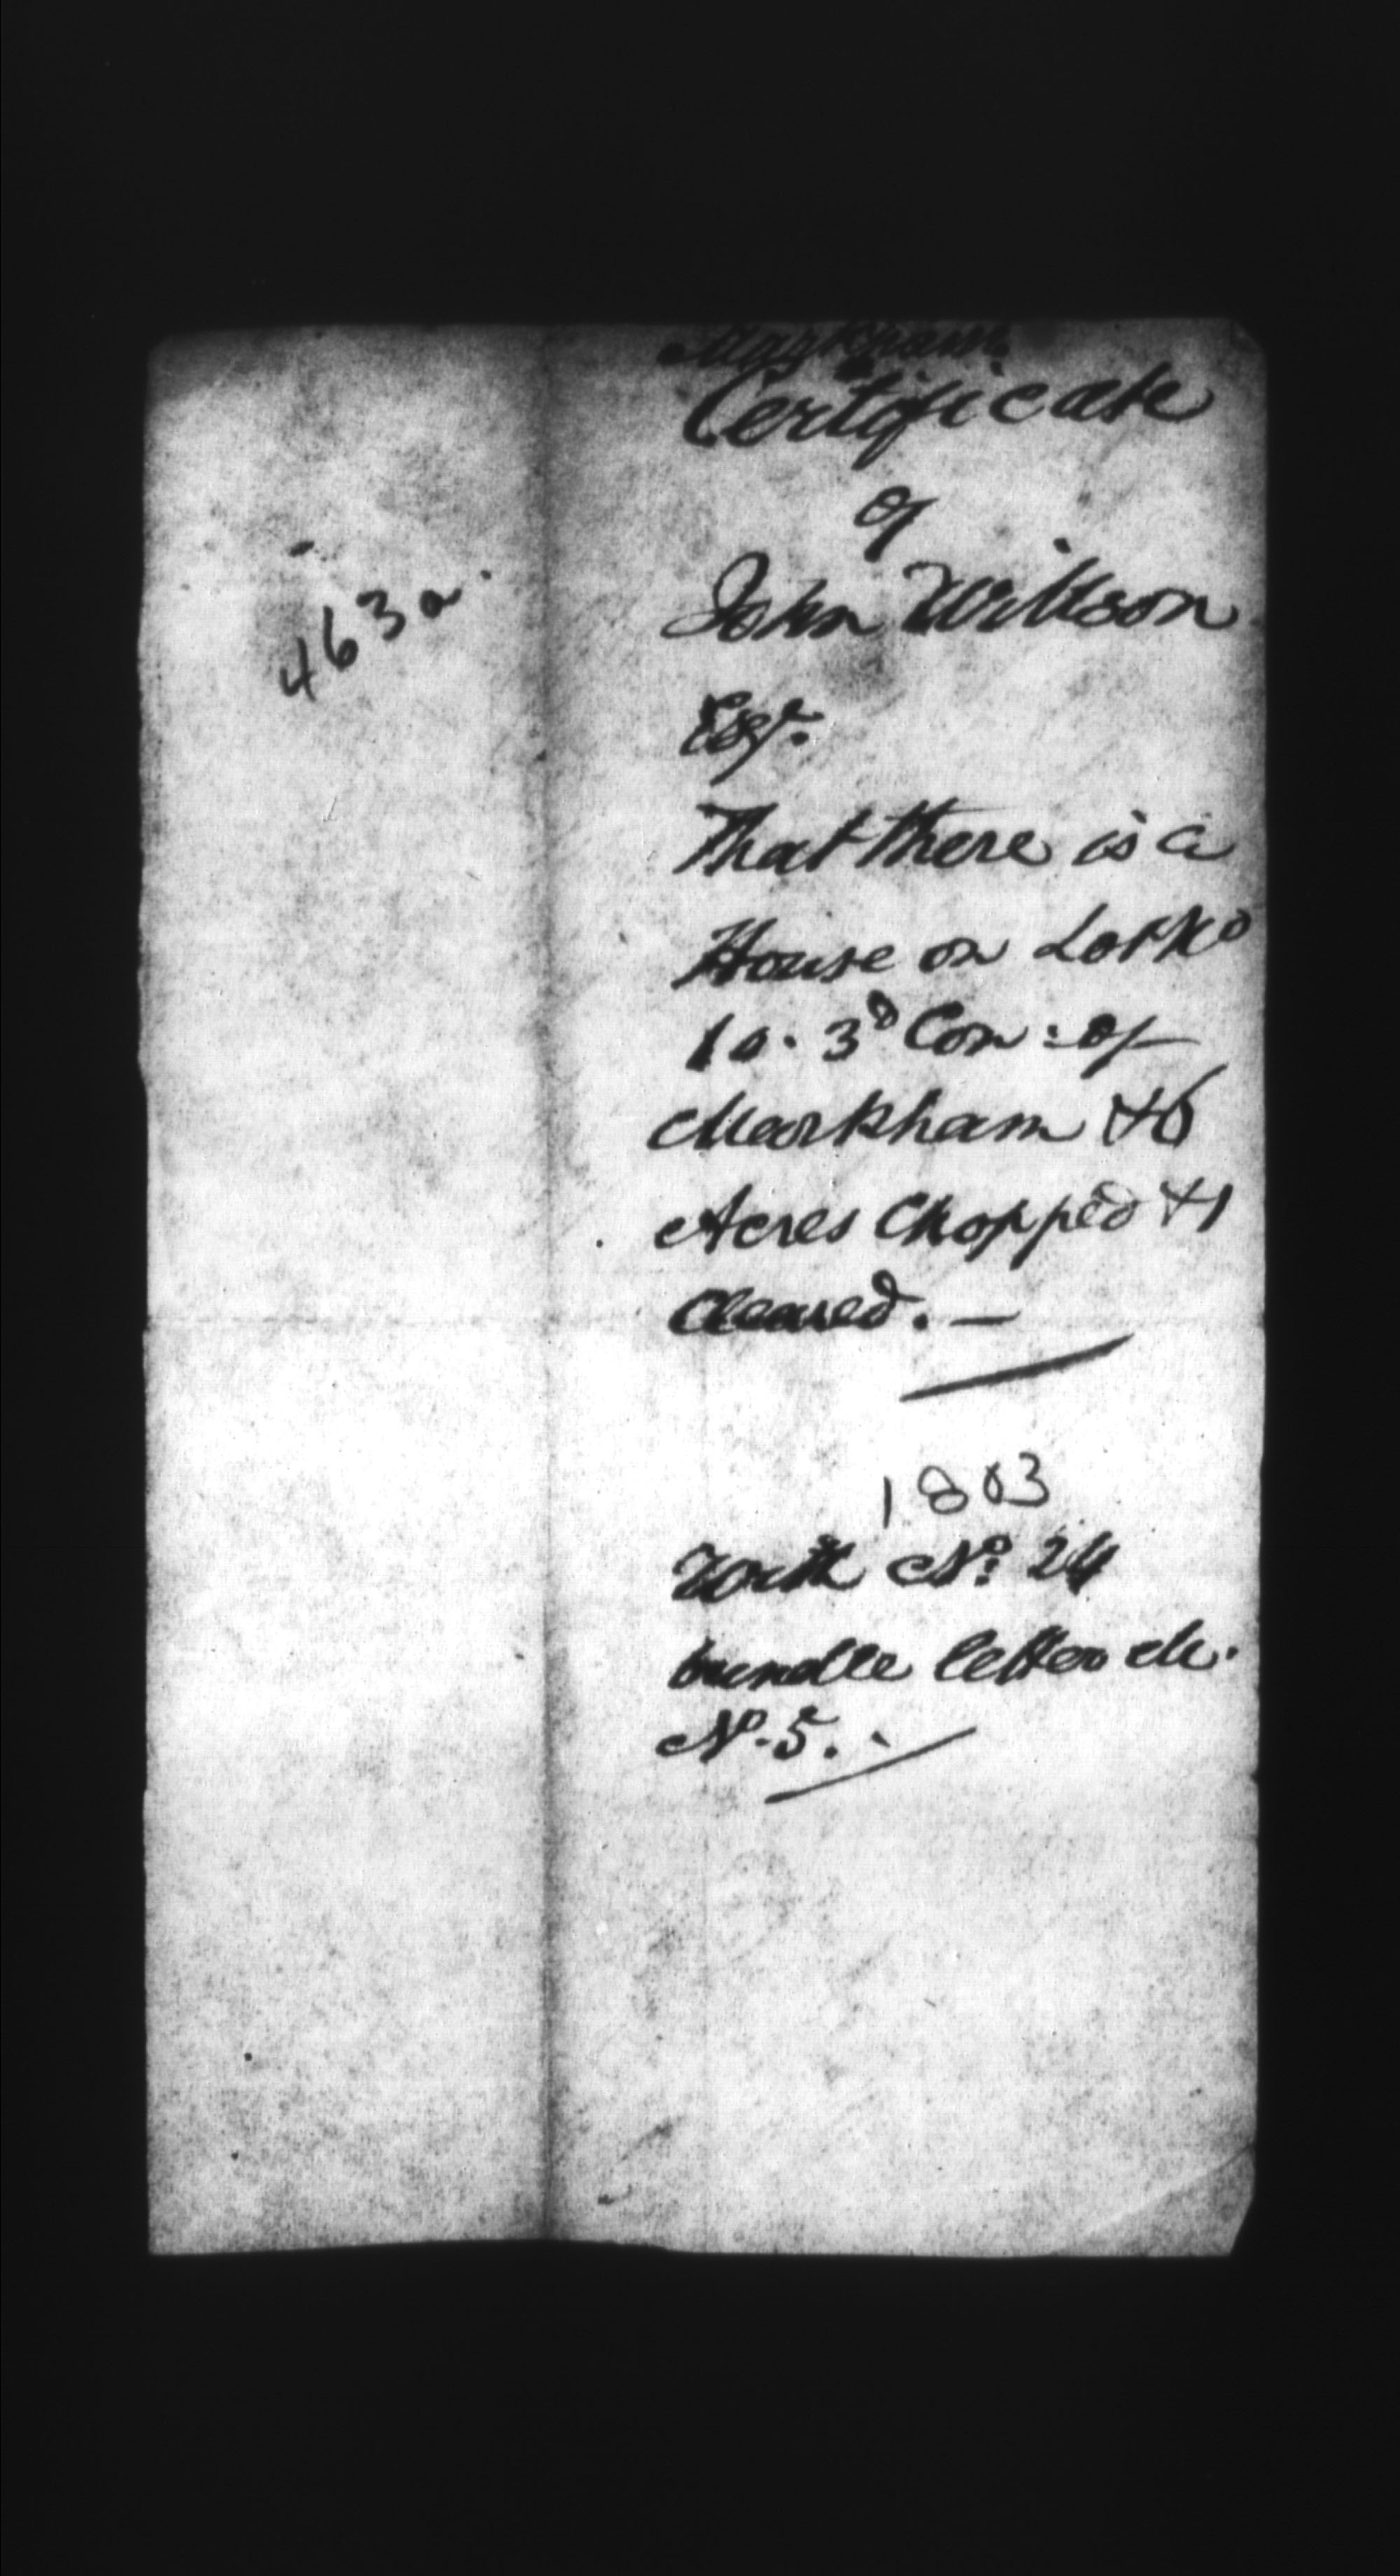 463a.
Markham
Certificate
of
John Willson
Esqr.
That there is a
House on Lot No
10. 3d Con: of
Markham & 6
Acres Chopped & 1
Cleared. —
1803
With No. 24
bundle letter M.
No. 5.